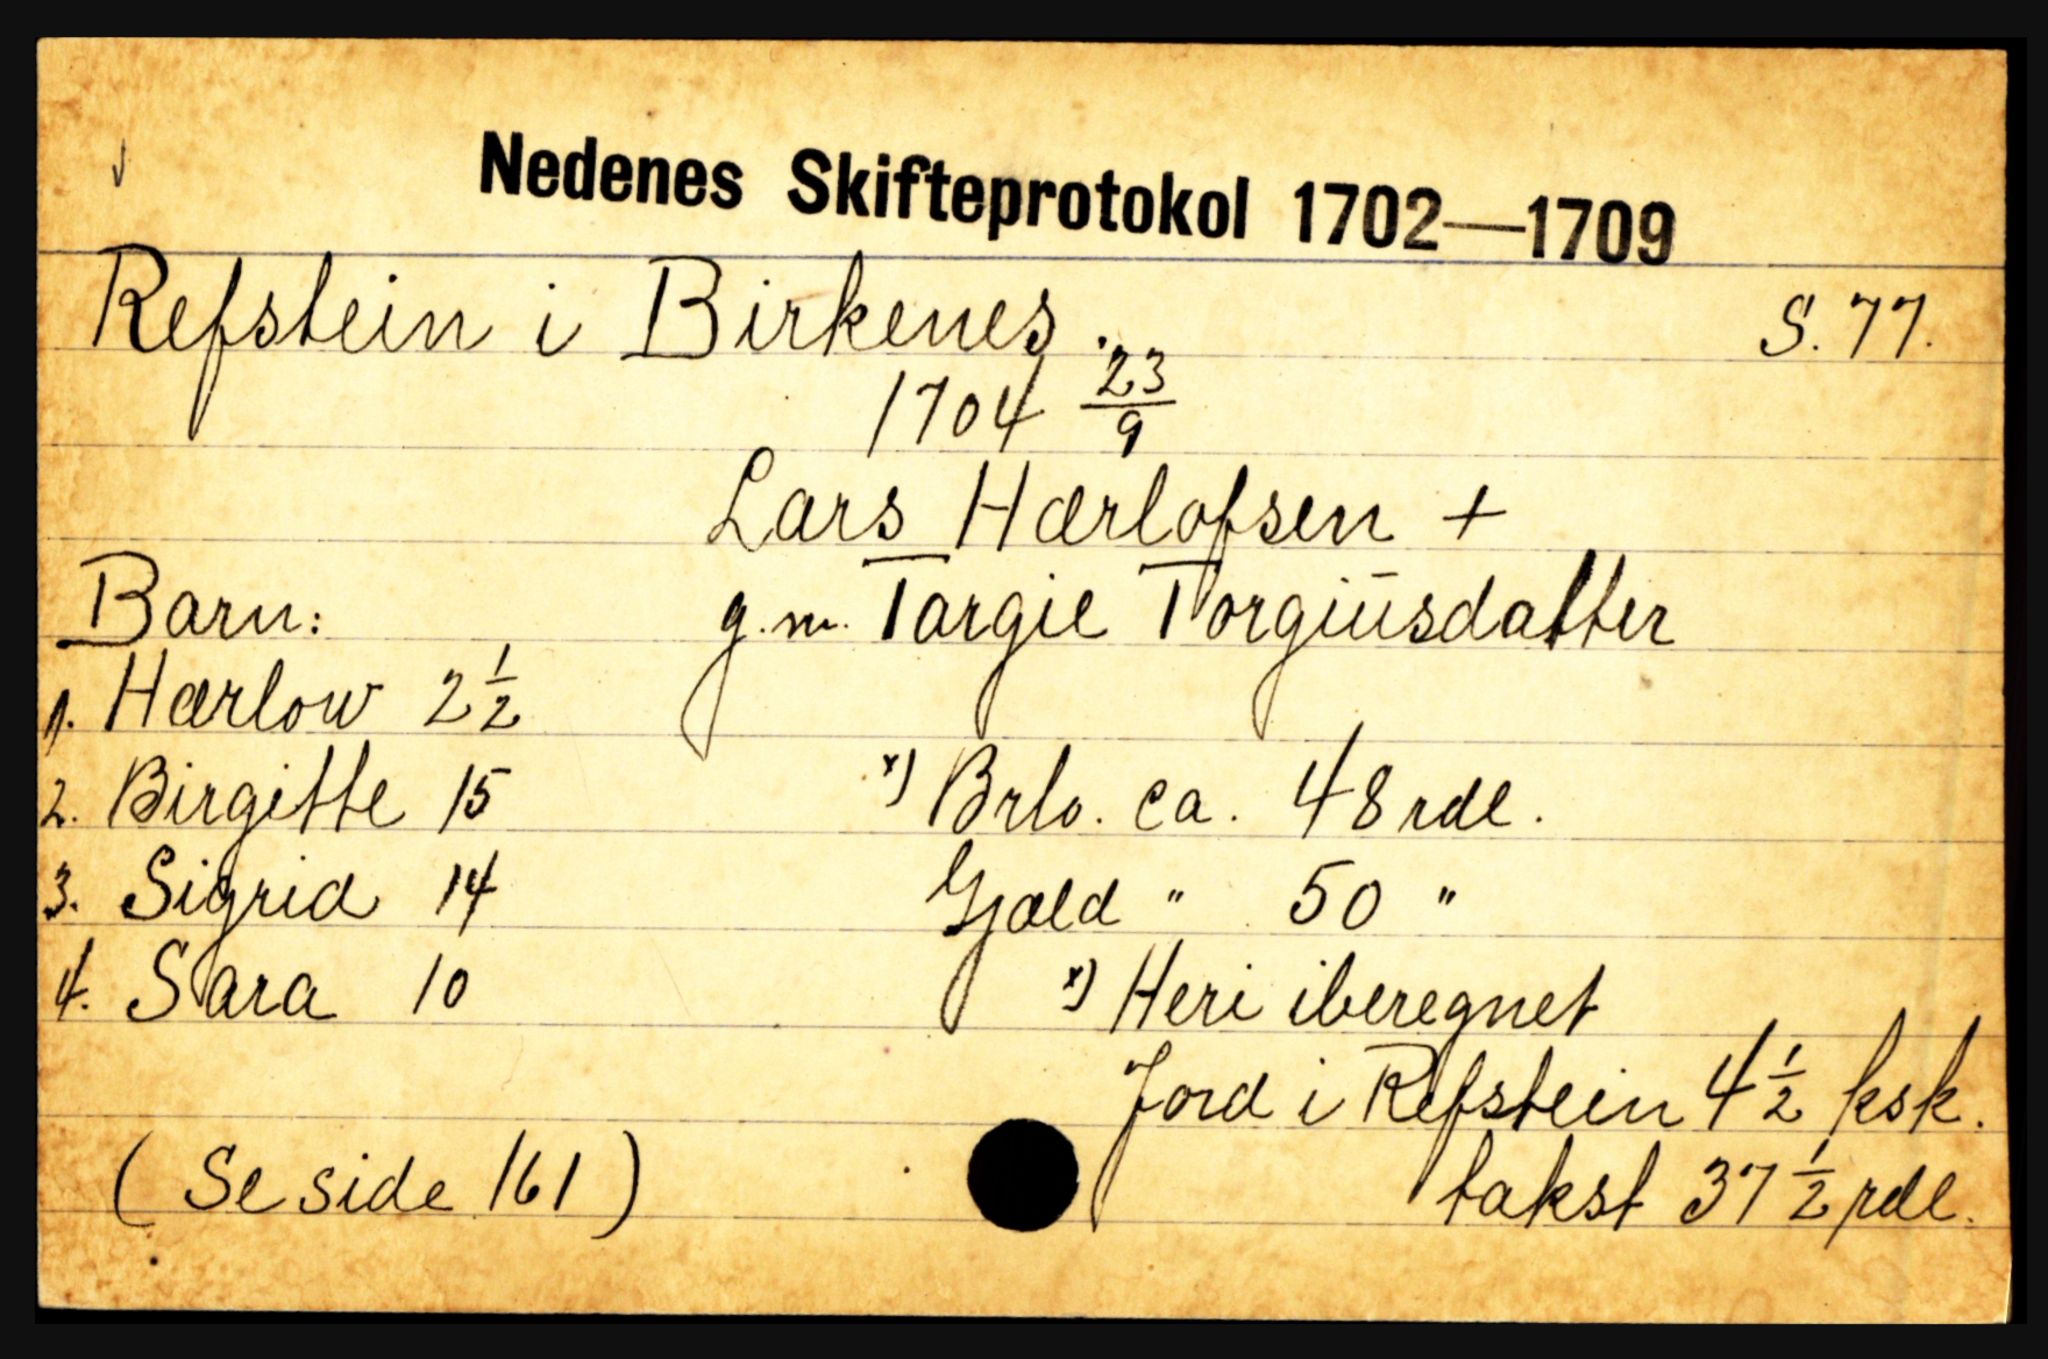 Nedenes Skifteprotokol 1702—1709
Refstein i Birkenes. S. 77.
1704 23/9
Lars Hærlofsen +
g.m. Targie Torgiusdatter
Barn:
1. Hærlow 2 1/2
2. Birgitte 15
3. Sigrid 14
4. Sara 10
x) Brlo. ca. 48 rdl.
Gjæld " 50 "
x) Heri iberegnet
Jord i Refstein 4 1/2 ksk.
takst 37 1/2 rdl.
(Se side 161)